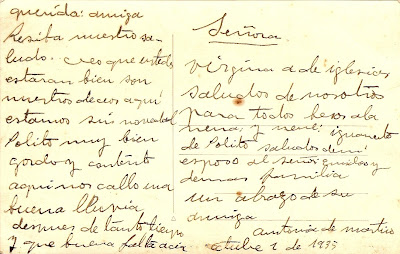 querida: amiga
Resiba nuestro sa-
ludo. creo que ustedes
estaran bien son
nuestros deceos aqui
estamos sin novedad
Polito muy bien
gordo y contento
aqui nos callo una
buena lluvia
despues de tanto tiempo
y que buena falta acia
Señora.
virgina de iglesias
saludos de nosotros
para todos besos a la
nena, y nene: igual
de Polito saludos de mi
esposo al señor y
demas familia
un abrazo de su
amiga
Antonia de
octubre 1 de 1935